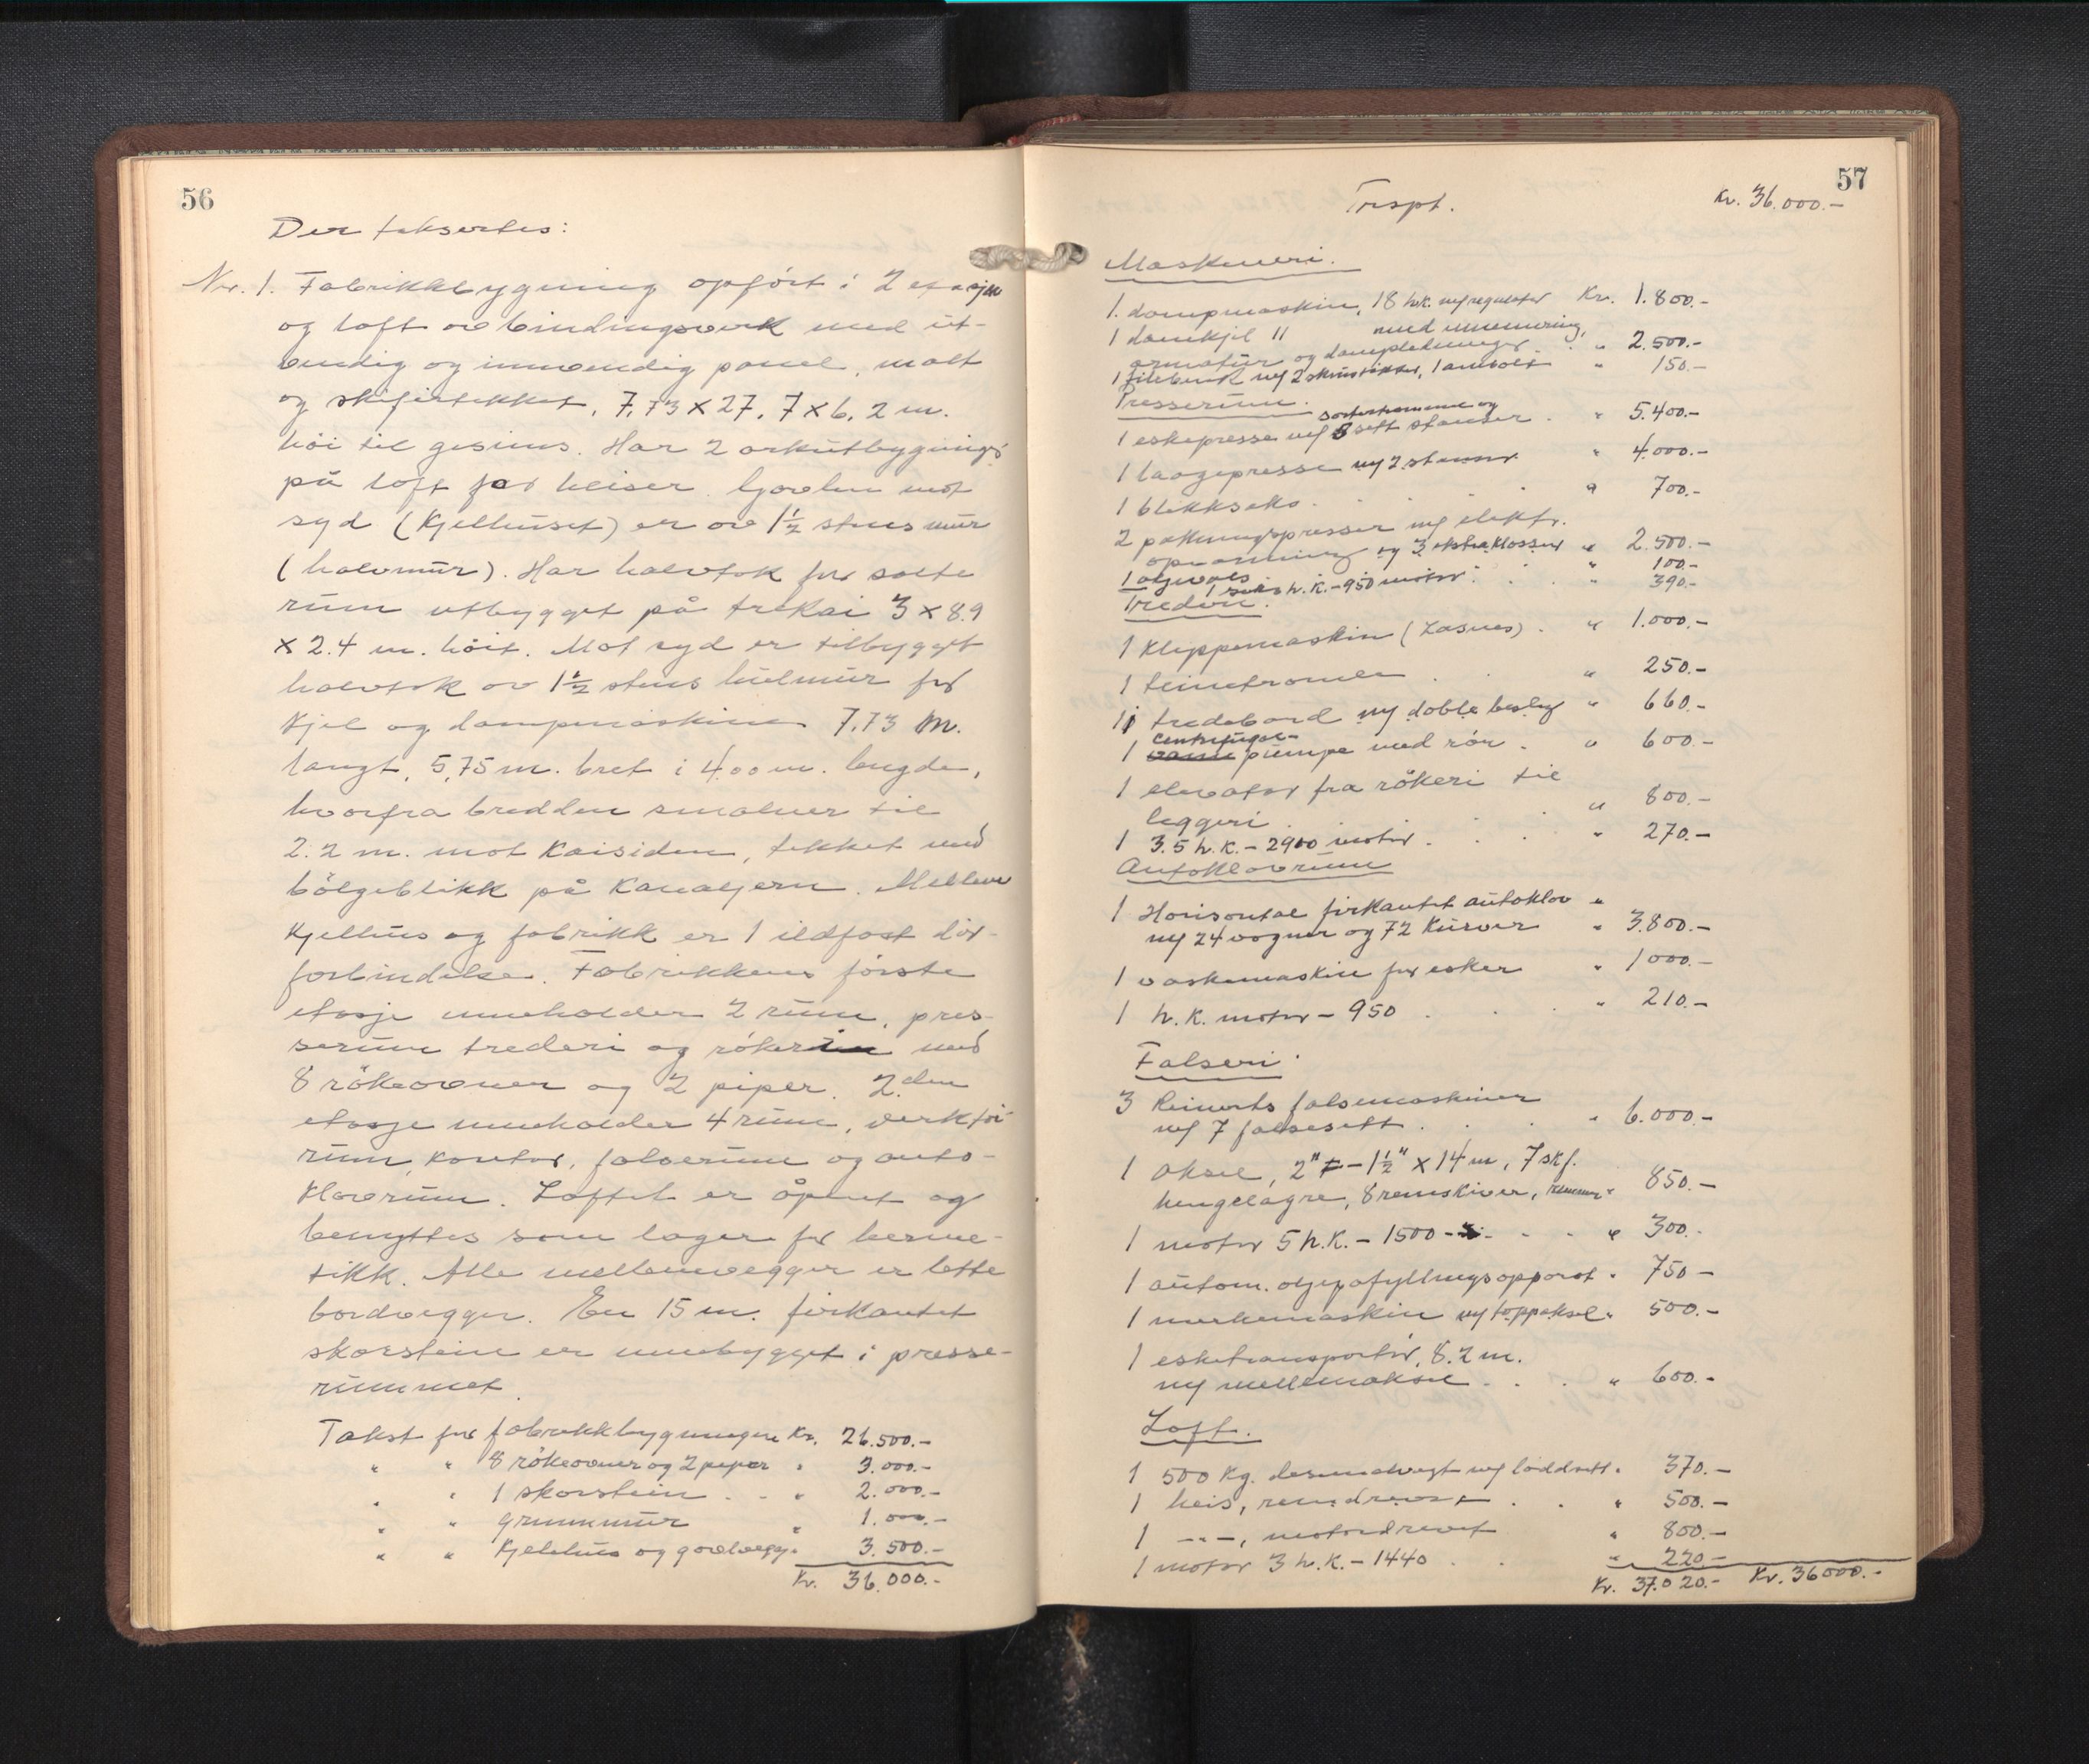 56
Der taksertes:
Nr. 1. Fabrikkbygning opført i 2 etasjer
og loft av bindingsverk med ut-
vendig og innvendig panel, malt
og skifertekket, 7,73 x 27,7 x 6,2 m.
höi til gesims. Har 2 arkutbygninger
på loft for heiser. Gavlen mot
syd (Kjelhuset) er av 1½ stens mur
(halvmur). Har halvtak for salte
rum utbygget på trekai 3 x 8.9
x 2.4 m. höit. Mot syd er tilbygget
halvtak av 1½ stens hulmur for
Kjel og dampmaskin 7,73 m.
langt, 5,75 m. bret i 4,00 m. lengde,
hvorfra bredden smalner til
2.2 m. mot Kaisiden, tekket med
bölgeblikk på Kanaljern. Mellem
Kjelhus og fabrikk er 1 ildfast dör-
forbindelse. Fabrikkens förste
etasje inneholder 2 rum, pres-
serum trederi og rökeri med
8 rökeovner og 2 piper. 2.den
etasje inneholder 4 rum, verktöi-
rum, Kontor, falserum og auto-
klavrum. Loftet er åpent og
benyttes som lager for herme-
tikk. Alle mellemvegger er lette
bordvegger. En 15 m. firkantet
skorstein er innebygget i presse-
rummet.
Takst for fabrikkbygningen Kr. 26.500.-
" " 8 rökeovner og 2 piper " 3.000.-
" " 1 skorstein . - " 2.000.-
" " grunnmur " 1.000.-
" " Kjelhus og gavlvegg " 3.500.-
Kr. 36.000.-
57
Trspt. Kr. 36.000.-
Maskineri.
1. dampmaskin, 18 h.k. m/regulator Kr. 1.800.-
1 damkjel 11 med innmuring,
armatur og dampledninger . . " 2.500.-
1 filebenk m/ 2 skrustikker, 1 ambolt " 150.-
Presserum.
sorterramme og
1 eskepresse m/ 8 sett stanser . " 5.400.-
1 laagepresse m/ 2 stanser " 4.000.-
1 blikksaks . . . . " 700.-
2 pakningspresser m/ elektr.
opvarming og 3 ekstra klosser " 2.500.-
1 oljevals " 100.-
1 h.k. - 950 motor . . " 390.-
Trederi.
1 Klippemaskin (Lasnes) . " 1.000.-
1 teinetromle . " 250.-
11 tredebord m/ doble beslag " 660.-
centrifugal-
1 pumpe med rör . " 600.-
1 elevator fra rökeri til
leggeri . . . " 800.-
1 3.5 h.k. - 2900 motor . . . " 270.-
Autoklavrum
1 Horisontal firkantet autoklav "
m/ 24 vogner og 72 Kurver " 3.800.-
1 vaskemaskin for esker " 1000.-
1 h.k. motor - 950 . . . " 210.-
Falseri.
3 Reinerts falsemaskiner
m/ 7 falsesett . . . " 6.000.-
1 aksel, 2" - 1½" x 14 m, 7 skf.
hengelagre, 8 remskiver, remmer " 850.-
1 motor 5 h.k. - 1500 - . . . " 300.-
1 autom. oljepafyllingsapparat " 750.-
1 merkemaskin m/ toppaksel " 500.-
1 esketransportör, 8.2 m.
m/ mellemaksel . . . " 600.-
Loft.
1 500 Kg. desimalvegt m/ loddsett " 370.-
1 heis, remdrevet . . " 500.-
1 -"-, motordrevet " 800.-
1 motor 3 h.k. - 1440 . . " 220.-
Kr. 37.020.- Kr. 36000.-